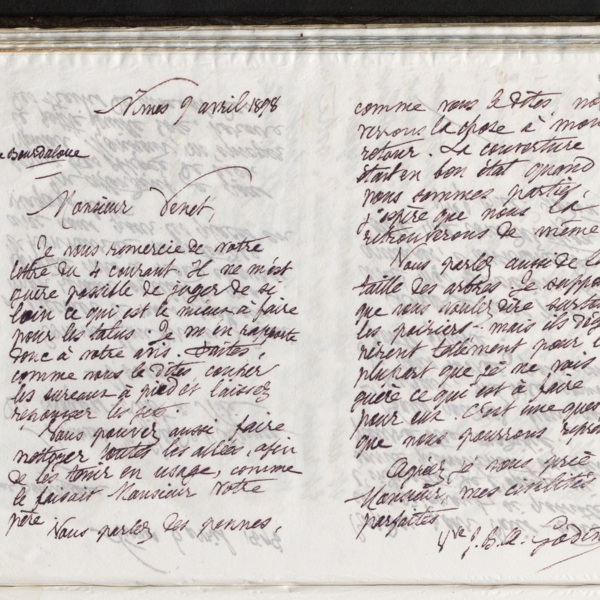 Nimes 9 avril 1898
Bourdaloue
Monsieur Venet,
Je vous remercie de votre
lettre du 4 courant. Il ne m'est
guère possible de juger de si
loin ce qui est le mieux à faire
pour les talus. Je m'en rapporte
donc à votre avis. Faites,
comme vous le dites couper
les sureaux à pied et laissez
repousser les
Vous pouvez aussi faire
nettoyer toutes les allées, afin
de les tenir en usage, comme
le faisait Monsieur Votre
père
Vous parlez des pannes,
comme vous le dites, nous
verrons la chose à mon
retour. La couverture
était en bon état quand
nous sommes partis,
j'espère que nous la
retrouverons de même
Vous parlez aussi de la
taille des arbres. Je suppose
que vous voulez dire surtout
les poiriers - mais ils
tellement pour la
plupart que je ne vois
guère ce qui est à faire
pour eux. C'est une ques
que nous pourrons
Agréez je vous prie
Monsieur, mes civilités
parfaites
Vve J. B. A. Godin